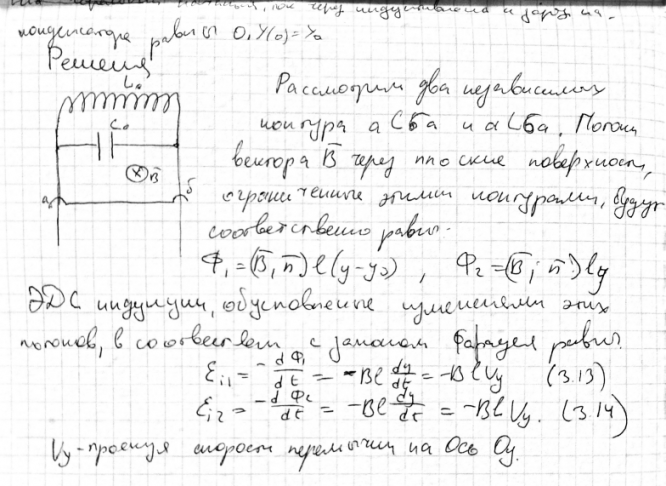 ток через индуктивность и заряд на
конденсаторе равны 0, y(0)=y₀
Решения
L₀
C₀
B̄
а
б
Рассмотрим два независимых
контура aCбa и aLбa. Поток
вектора B̄ через плоские поверхности,
ограниченные этими контурами, будут
соответственно равны.
Φ₁ = (B̄, n̄) l (y-y₂) , Φ₂ = (B̄; n̄) ly
ЭДС индукции, обусловленные изменениями этих
потоков, в соответствии с законом Фарадея равны.
Ɛi1 = -dΦ₁/dt = -Bl dy/dt = -BlVy (3.13)
Ɛi2 = -dΦ₂/dt = -Bl dy/dt = -BlVy. (3.14)
Vy-проекция скорости перемычки на Ось Oy.